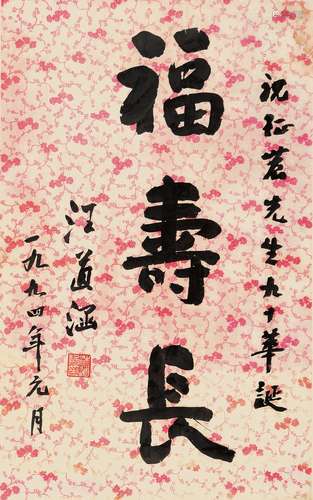 祝征莙先生九十華誕
福壽長
汪道涵
一九九四年元月